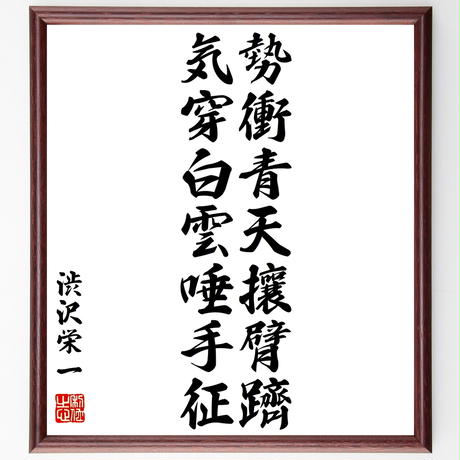 勢衝青天攘臂躋
気穿白雲唾手征
渋沢栄一